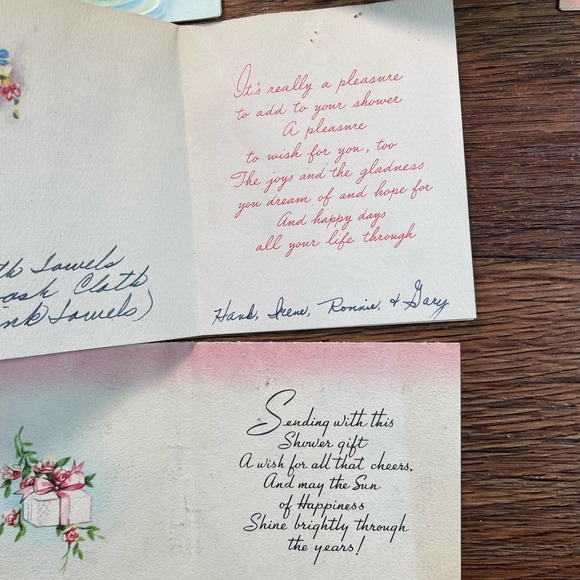 It's really a pleasure
to add to your shower
A pleasure
to wish for you, too
The joys and the gladness
you dream of and hope for
And happy days
all your life through
th Towels
ash Cloth
nk Towels)
Hank, Irene, Ronnie, & Gary
Sending with this
Shower gift
A wish for all that cheers,
And may the Sun
of Happiness
Shine brightly through
the years!